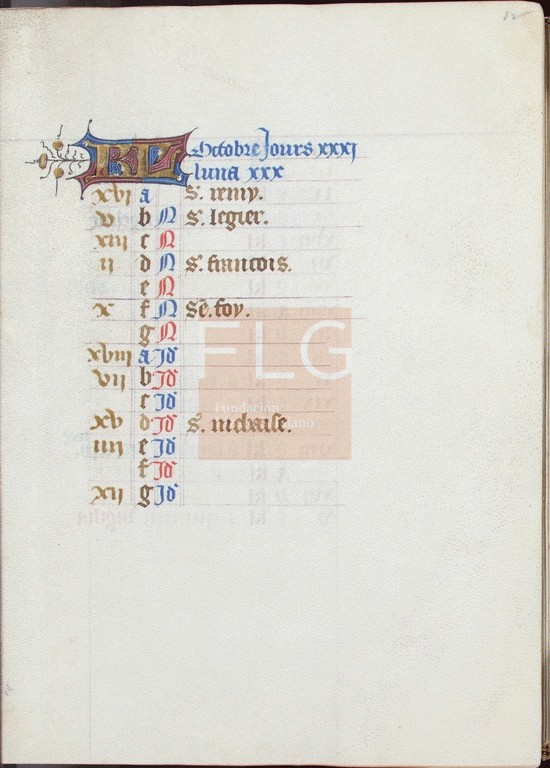 12
KL Octobre Jours xxxj
luna xxx
xvj a S. remy.
v b N S. legier.
xiij c N
ij d N S. francois.
e N
x f N Sē. foy.
g N
xviij a Id
vij b Id
c Id
xv d Id S. nichaise.
iiij e Id
f Id
xij g Id
FLG
Fundación